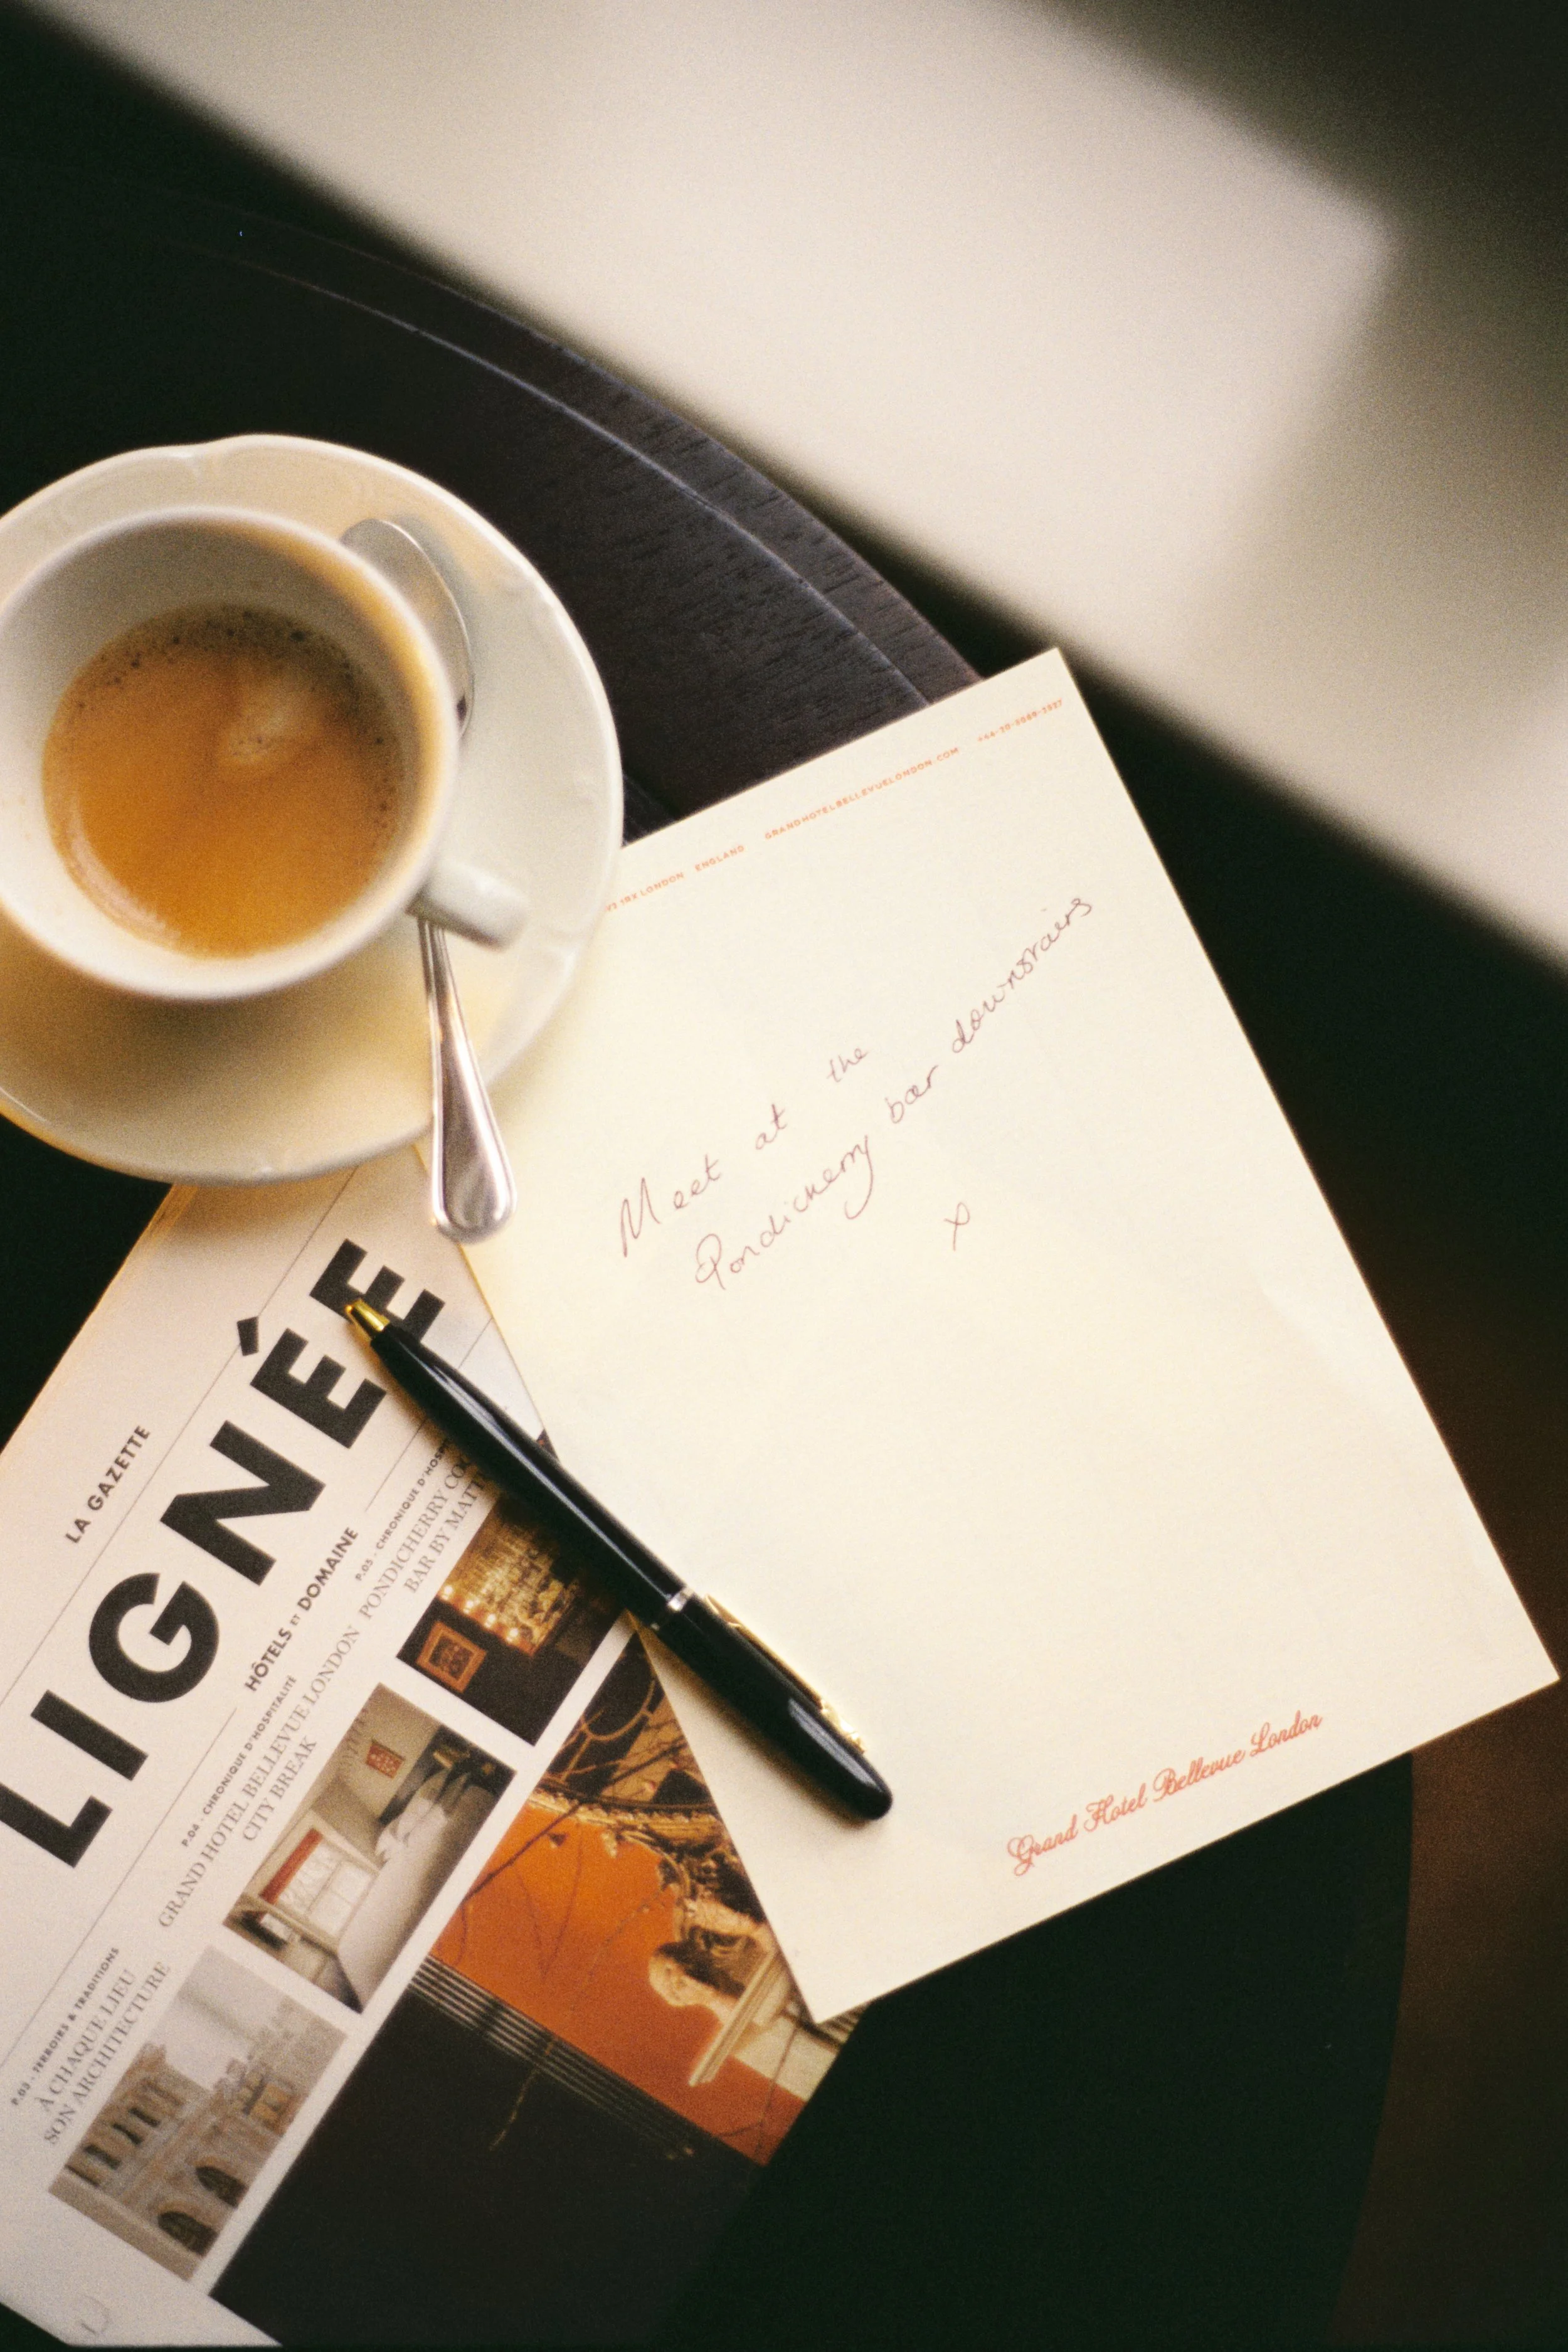 LONDON ENGLAND GRANDHOTELBELLEVUELONDON.COM
Meet at the
Pondicherry bar downstairs
x
Grand Hotel Bellevue London
LA GAZETTE
LIGNÉE
HÔTELS ET DOMAINE
P.03 - TERROIRS & TRADITIONS
À CHAQUE LIEU
SON ARCHITECTURE
P.04 - CHRONIQUE D'HOSPITALITÉ
GRAND HOTEL BELLEVUE LONDON
CITY BREAK
P.05 - CHRONIQUE
PONDICHERRY
BAR BY